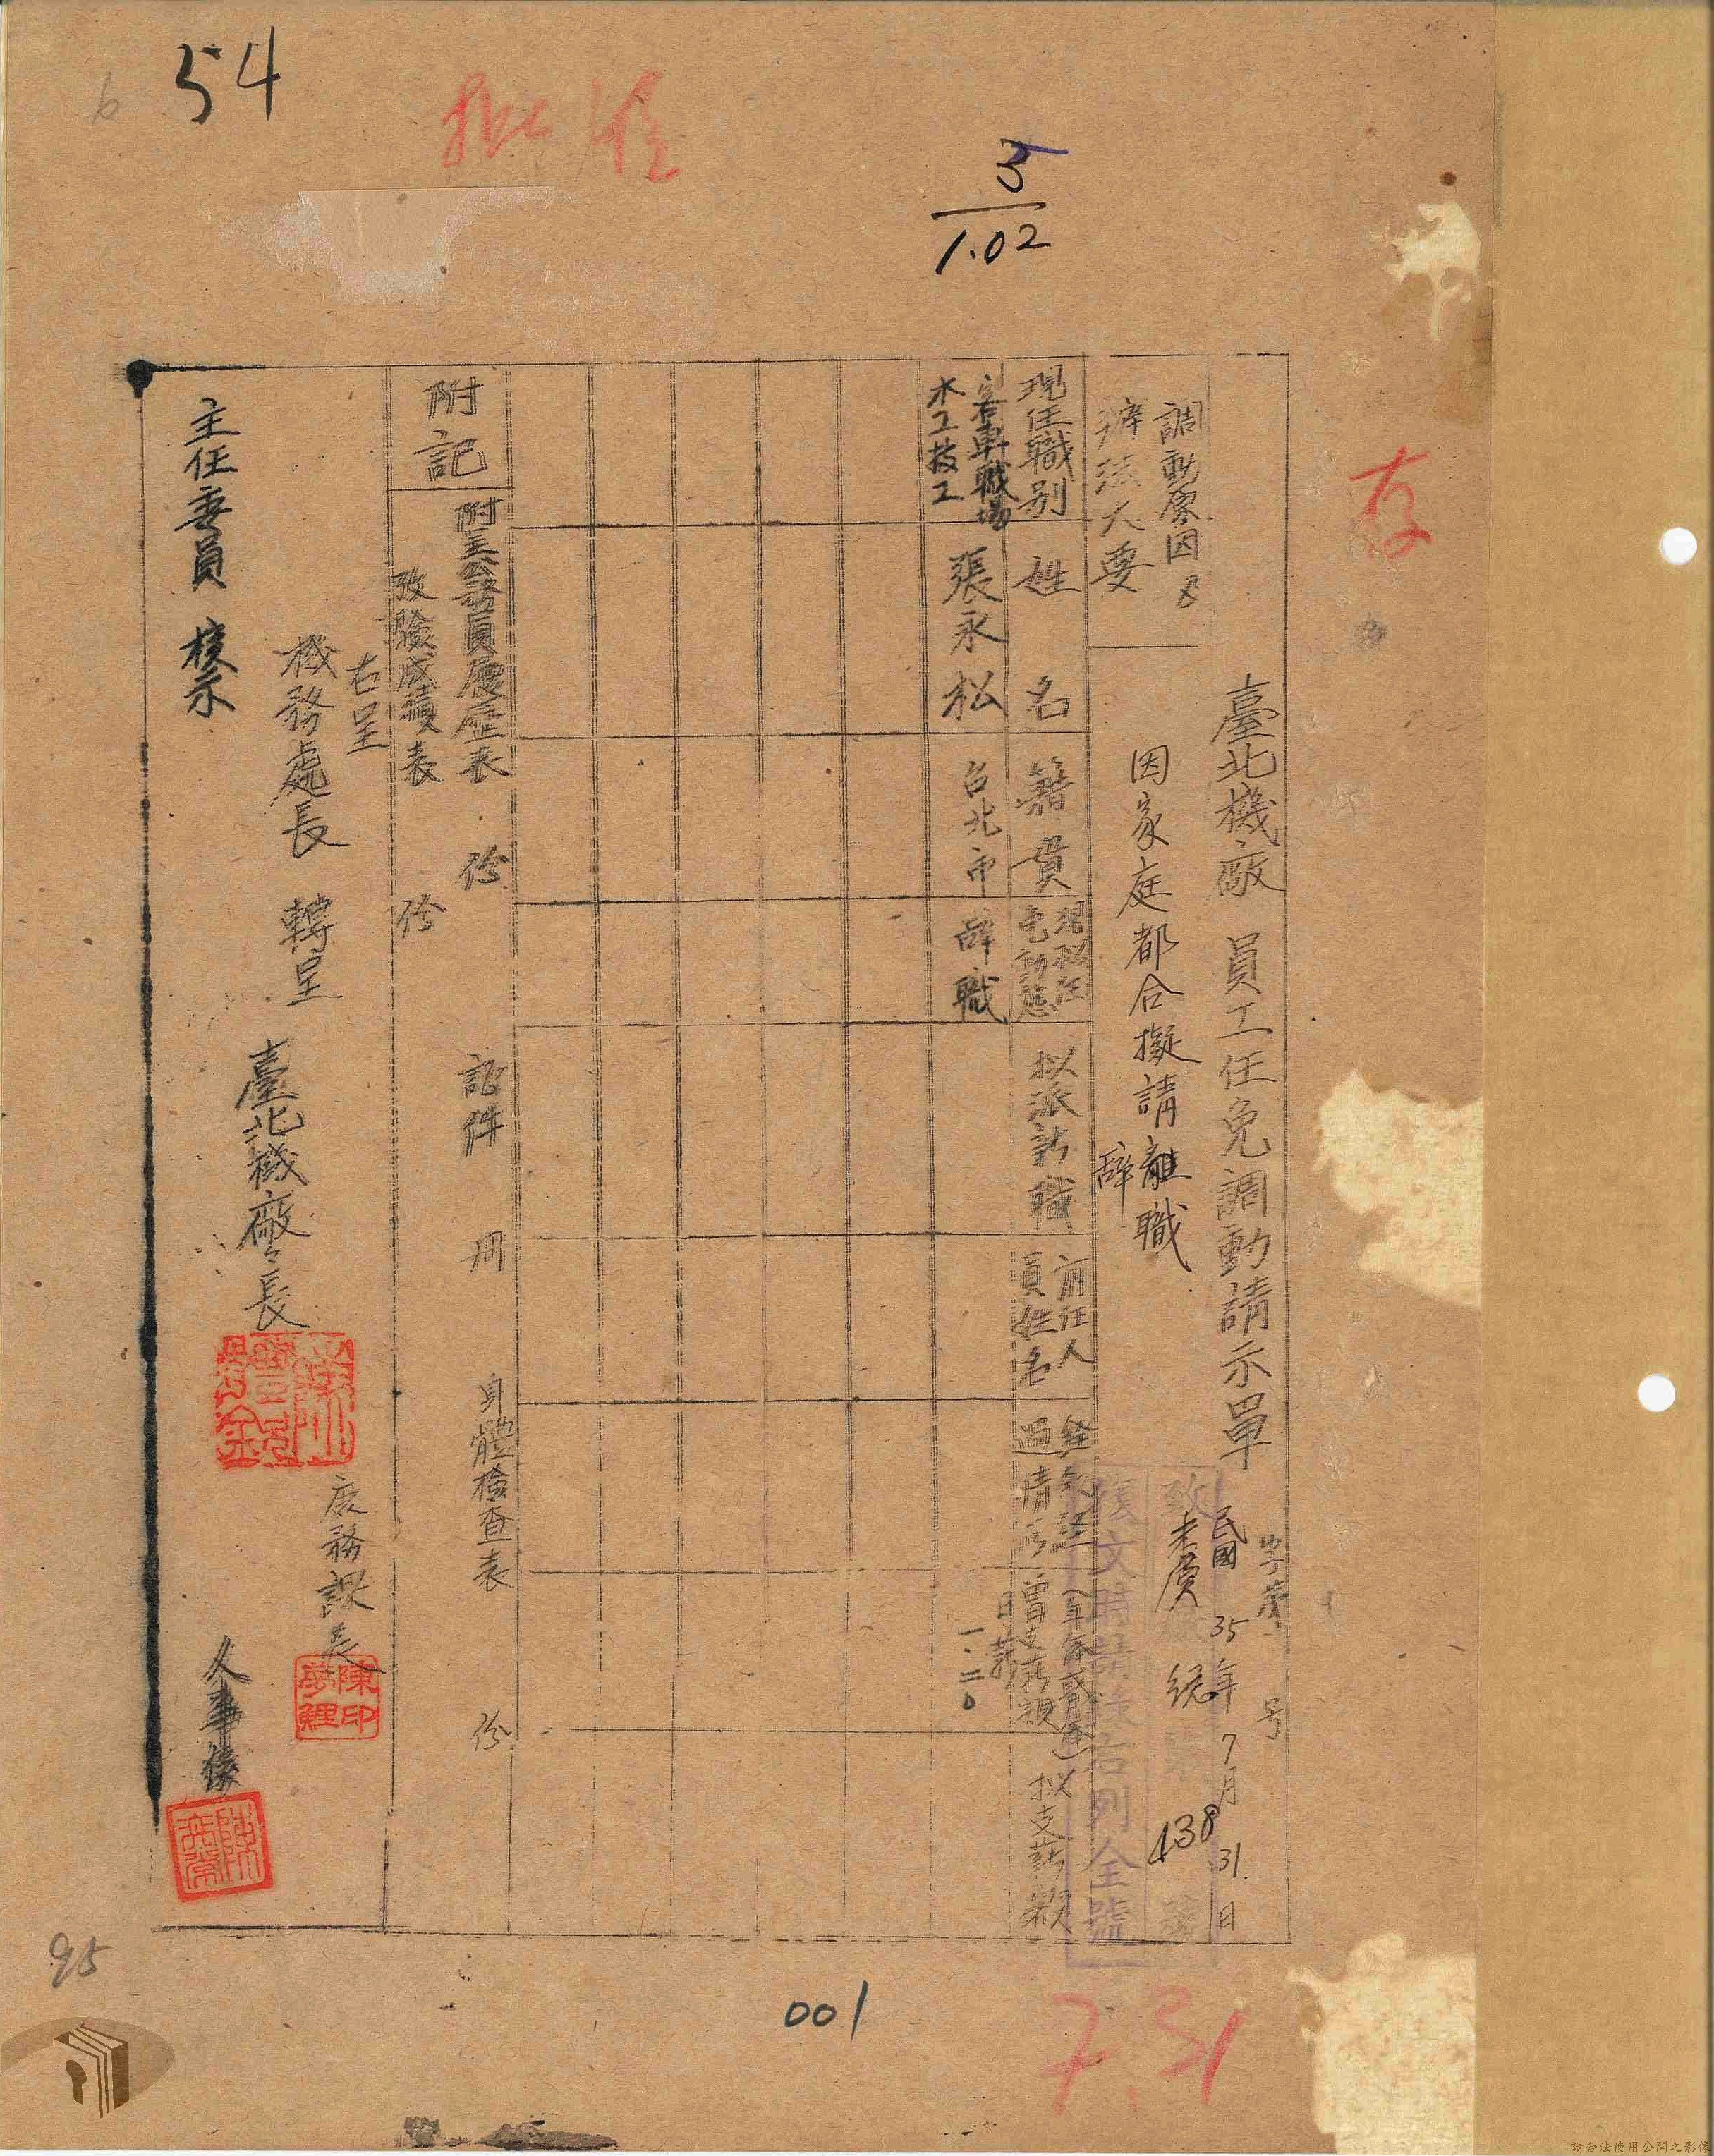 54
批准
5
1.02
存
臺北機廠 員工任免調動請示單
字第 号
民國35年7月31日
調動原因及
辦法大要
因家庭都合擬請離職
辭
復文時請錄右列全號
438
現任職別
姓名
籍貫
現擬任
免動態
拟派新職
前任人
員姓名
曾支薪額
拟支薪額
客車職場
木工技工
張永松
台北市
辭職
日薪
一.二〇
附記
附呈公務員履歷表 份
攷驗成績表 份
証件
身體檢查表 份
右呈
機務處長 轉呈
主任委員 核示
臺北機廠長
廠務課長
陳印
人事係
95
001
7.31
請合法使用公開之影像